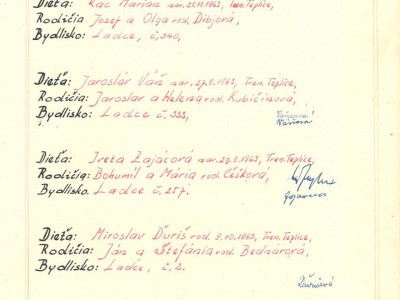 Dieťa: Rác Marian nar. 25.11.1963, Tren. Teplice,
Rodičia Jozef a Oľga rod. Dibjová,
Bydlisko: Ladce, č. 340,
Dieťa: Jaroslav Váň nar. 27.9.1963, Tren. Teplice,
Rodičia: Jaroslav a Helena rod. Kubičinová,
Bydlisko: Ladce č. 333,
Váňová
Dieťa: Iveta Zajacová nar. 29.9.1963, Tren. Teplice,
Rodičia: Bohumil a Mária rod. Češková,
Bydlisko. Ladce č. 257.
Dieťa: Miroslav Ďuriš rod. 9.10.1963, Tren. Teplice,
Rodičia: Ján a Štefánia rod. Bednárová,
Bydlisko: Ladce, č. 2.
Ďurišová